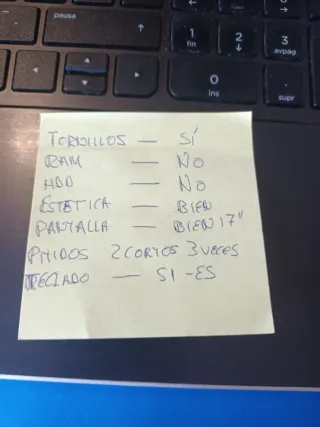 pausa
1
fin
2
↓
3
avpág
0
ins
.
supr
TORNILLOS — SÍ
RAM — NO
HDD — NO
ESTETICA — BIEN
PANTALLA — BIEN 17"
PITIDOS 2 CORTOS 3 VECES
TECLADO — SI - ES